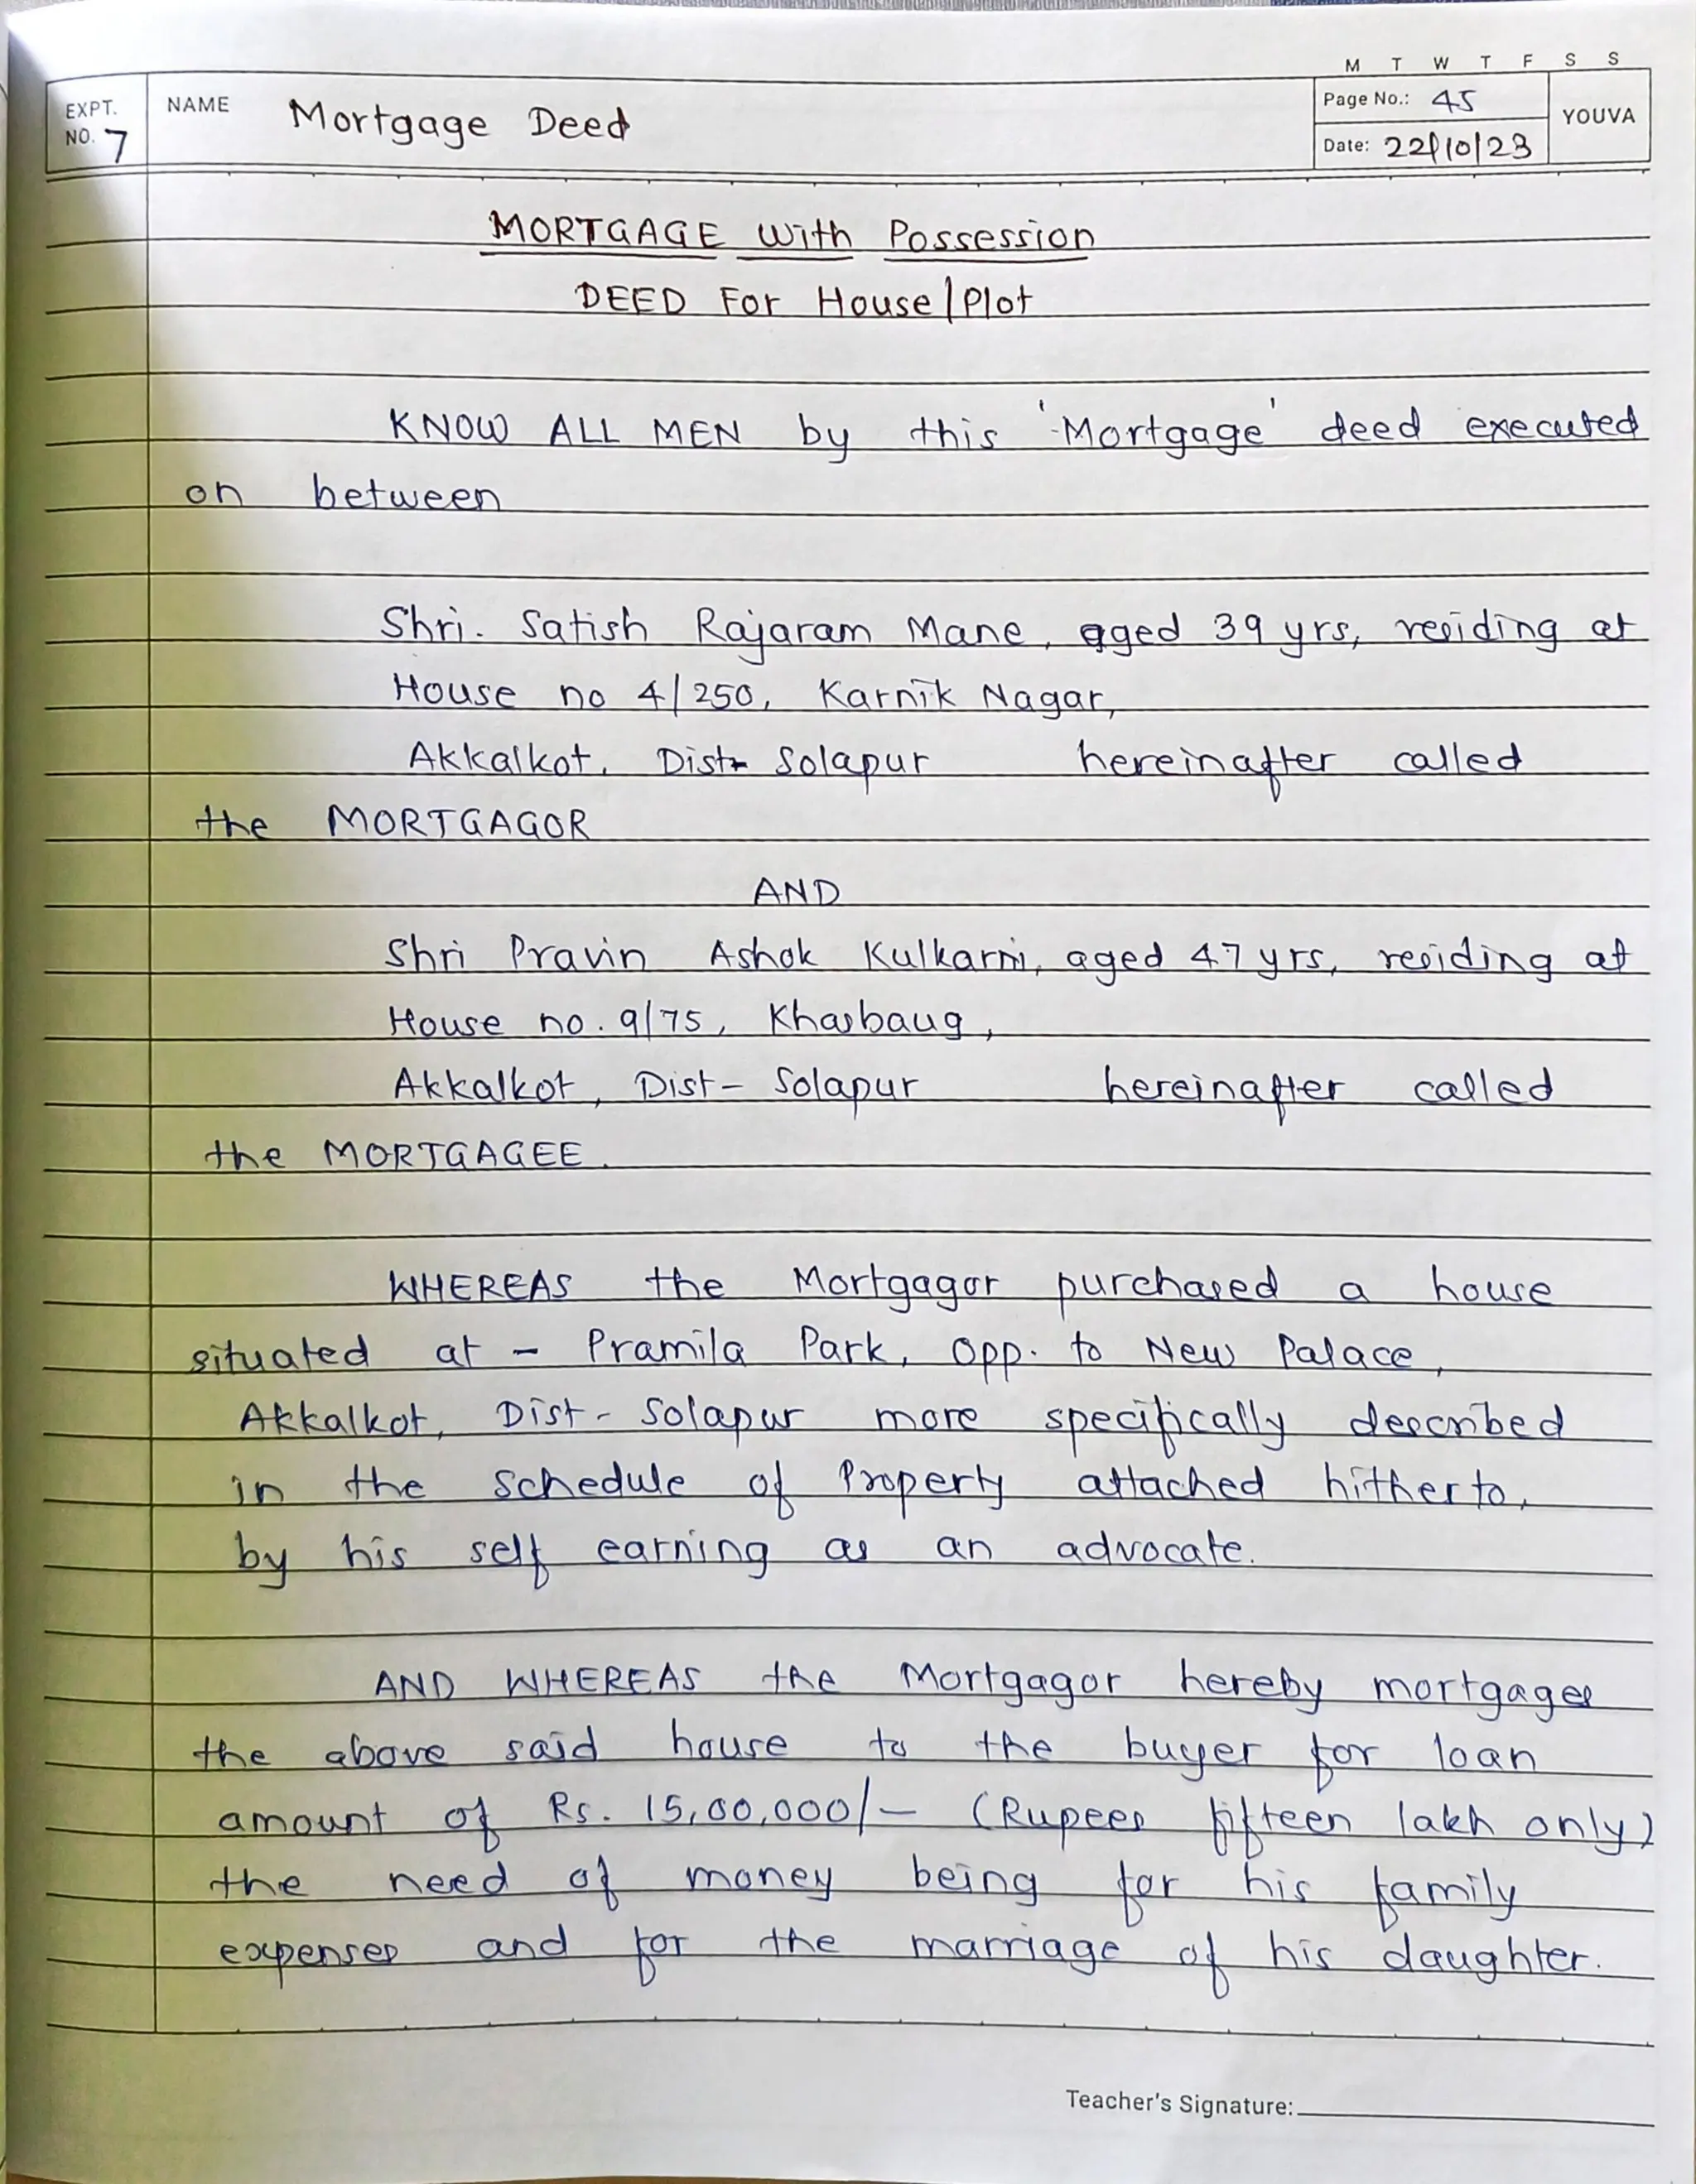 M T W T F S S
EXPT. NO. 7 NAME Mortgage Deed Page No.: 45 YOUVA
Date: 22/10/23
MORTGAGE With Possession
DEED For House/Plot
KNOW ALL MEN by this 'Mortgage' deed executed
on between
Shri. Satish Rajaram Mane, aged 39 yrs, residing at
House no 4/250, Karnik Nagar,
Akkalkot, Dist- Solapur hereinafter called
the MORTGAGOR
AND
Shri Pravin Ashok Kulkarni, aged 47 yrs, residing at
House no. 9/75, Khasbaug,
Akkalkot, Dist- Solapur hereinafter called
the MORTGAGEE.
WHEREAS the Mortgagor purchased a house
situated at - Pramila Park, Opp. to New Palace,
Akkalkot, Dist- Solapur more specifically described
in the schedule of Property attached hitherto,
by his self earning as an advocate.
AND WHEREAS the Mortgagor hereby mortgages
the above said house to the buyer for loan
amount of Rs. 15,00,000/- (Rupees fifteen lakh only)
the need of money being for his family
expenses and for the marriage of his daughter.
Teacher's Signature: